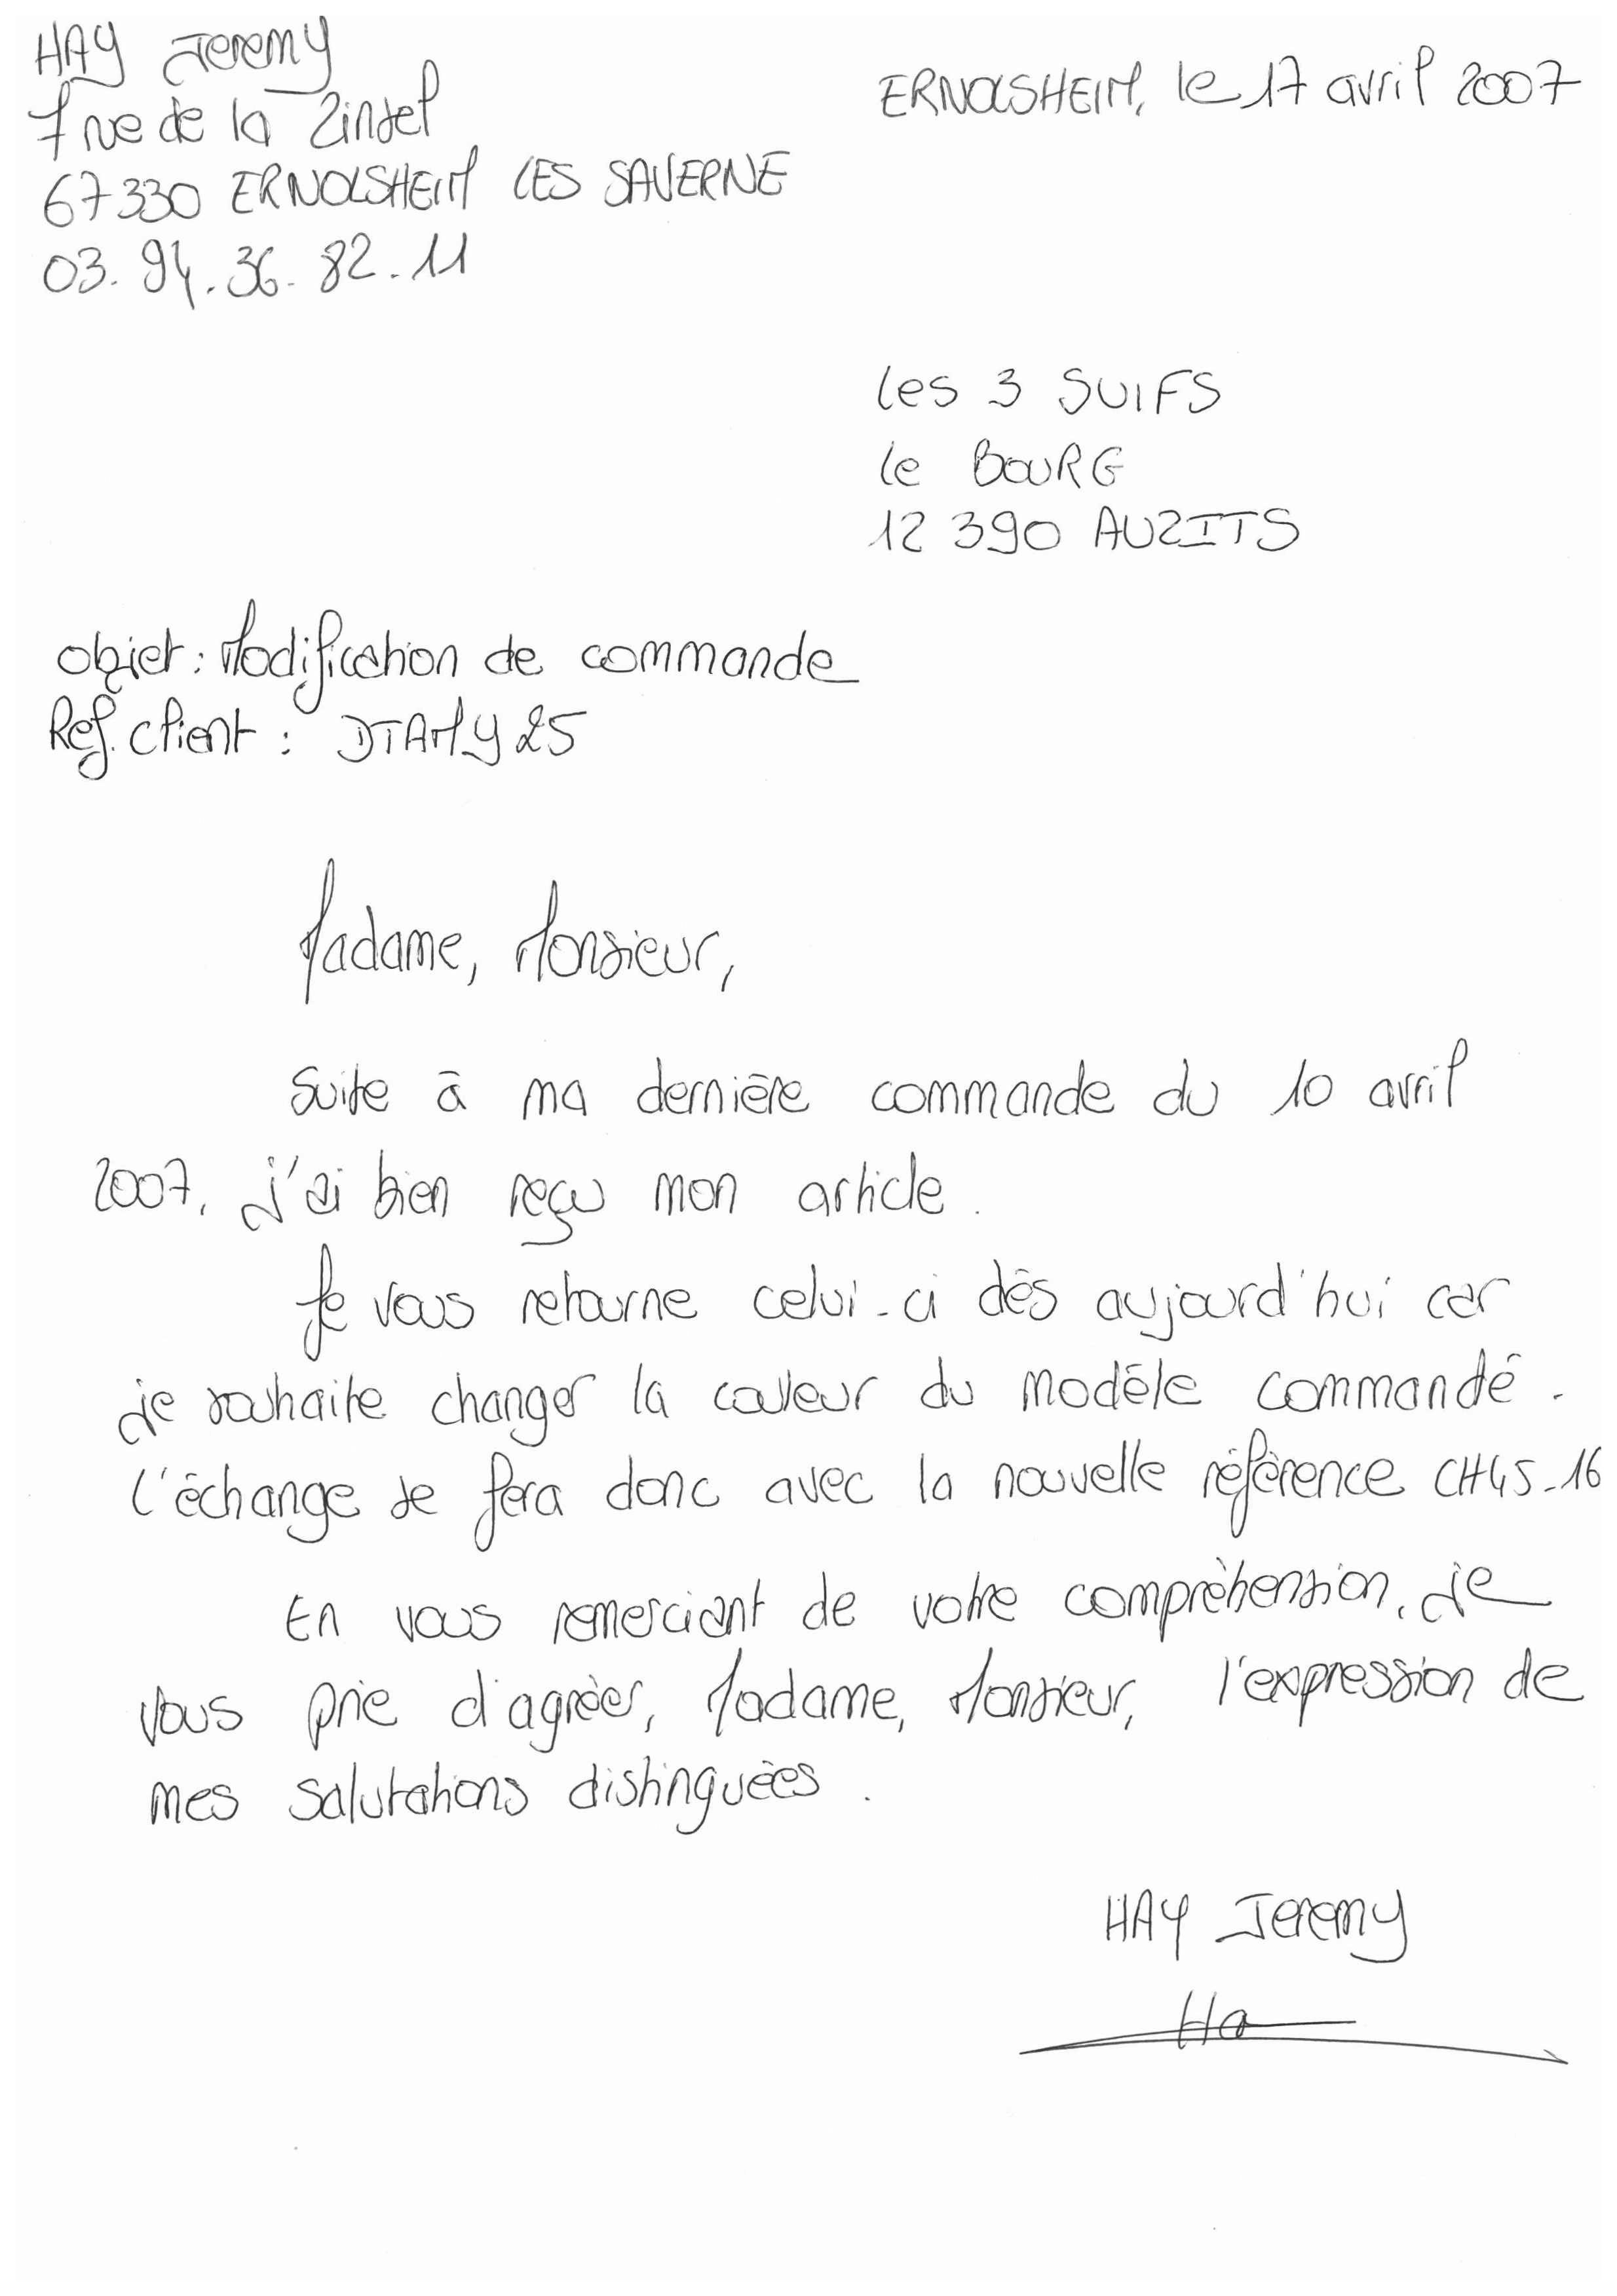 HAY Jeremy
7 rue de la Zinsel
67330 ERNOLSHEIM LES SAVERNE
03.94.36.82.11
ERNOLSHEIM, le 17 avril 2007
Les 3 SUIFS
Le BOURG
12 390 AUZITS
Objet : Modification de commande
Réf. client : DTAMY25
Madame, Monsieur,
Suite à ma dernière commande du 10 avril
2007, j'ai bien reçu mon article.
Je vous retourne celui-ci dès aujourd'hui car
je souhaite changer la couleur du modèle commandé.
L'échange se fera donc avec la nouvelle référence CH45-16
En vous remerciant de votre compréhension, je
vous prie d'agréer, Madame, Monsieur, l'expression de
mes salutations distinguées.
HAY Jeremy
Ha